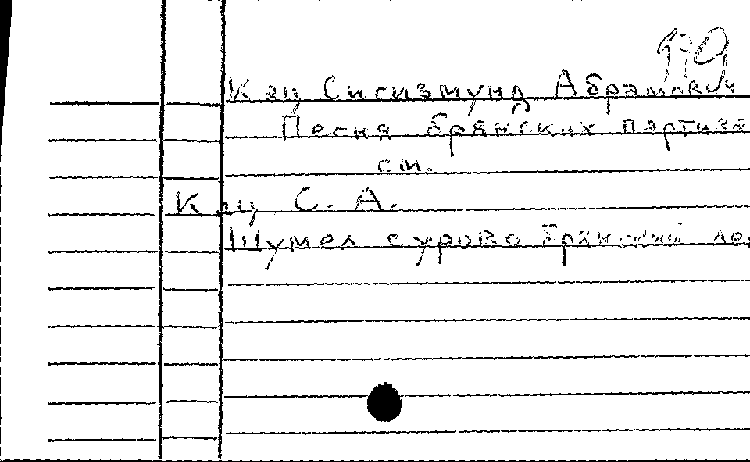 Кац Сигизмунд Абрамович
Песня брянских партиза
см.
Кац С. А.
Шумел сурово Брянский лес